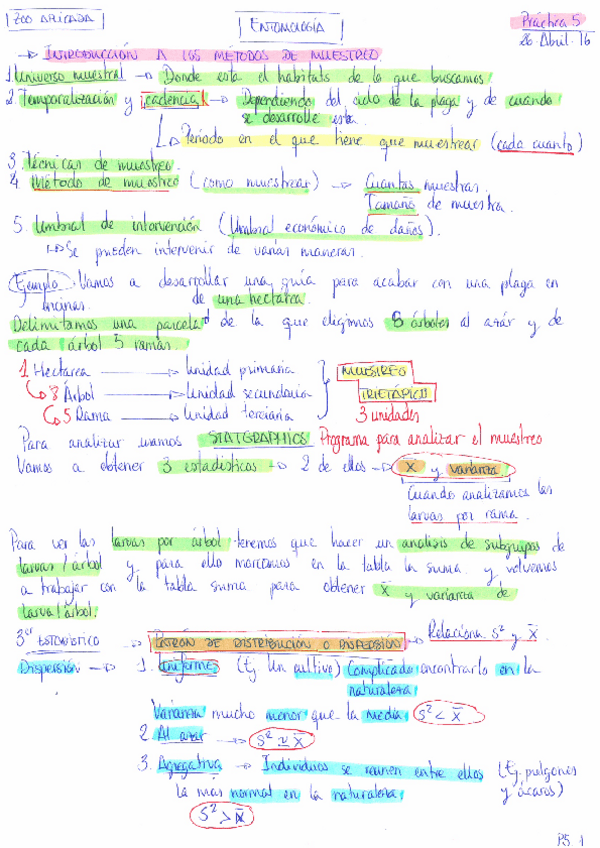 ZOO APLICADA
ENTOMOLOGÍA
Práctica 5
26 Abril. 16
→ INTRODUCCIÓN A LOS MÉTODOS DE MUESTREO
1. Universo muestral → Donde esta el habitats de lo que buscamos
2. Temporalización y cadencia → Dependiendo del ciclo de la plaga y de cuando
se desarrolle esta.
↳ Período en el que tiene que muestrear (cada cuanto)
3. Técnicas de muestreo.
4. Método de muestreo (como muestrear) → Cuantas muestras.
Tamaño de muestra.
5. Umbral de intervención (Umbral económico de daños).
↳ Se pueden intervenir de varias maneras.
Ejemplo Vamos a desarrollar una guía para acabar con una plaga en
encinas. de una hectarea.
Delimitamos una parcela de la que elegimos 8 árboles al azár y de
cada árbol 5 ramas.
1 Hectarea → Unidad primaria
8 Árbol → Unidad secundaria
5 Rama → Unidad terciaria
MUESTREO
TRIETÁPICO
3 unidades
Para analizar usamos STATGRAPHICS Programa para analizar el muestreo
Vamos a obtener 3 estadísticos → 2 de ellos → x̄ y varianza
Cuando analizamos las
larvas por rama.
Para ver las larvas por árbol tenemos que hacer un analisis de subgrupos de
larvas/árbol y para ello marcamos en la tabla la suma y volvemos
a trabajar con la tabla suma para obtener x̄ y varianza de
larva/árbol.
3er ESTADÍSTICO → PATRÓN DE DISTRIBUCIÓN O DISPERSIÓN → Relaciona S² y x̄.
Dispersión → 1. Uniforme (Ej Un cultivo) Complicado encontrarlo en la
naturaleza
Varianza mucho menor que la media S² < x̄
2. Al azar → S² ≃ x̄
3. Agregativa → Individuos se reunen entre ellos (Ej. pulgones
la mas normal en la naturaleza y ácaros)
S² > x̄
P5 1